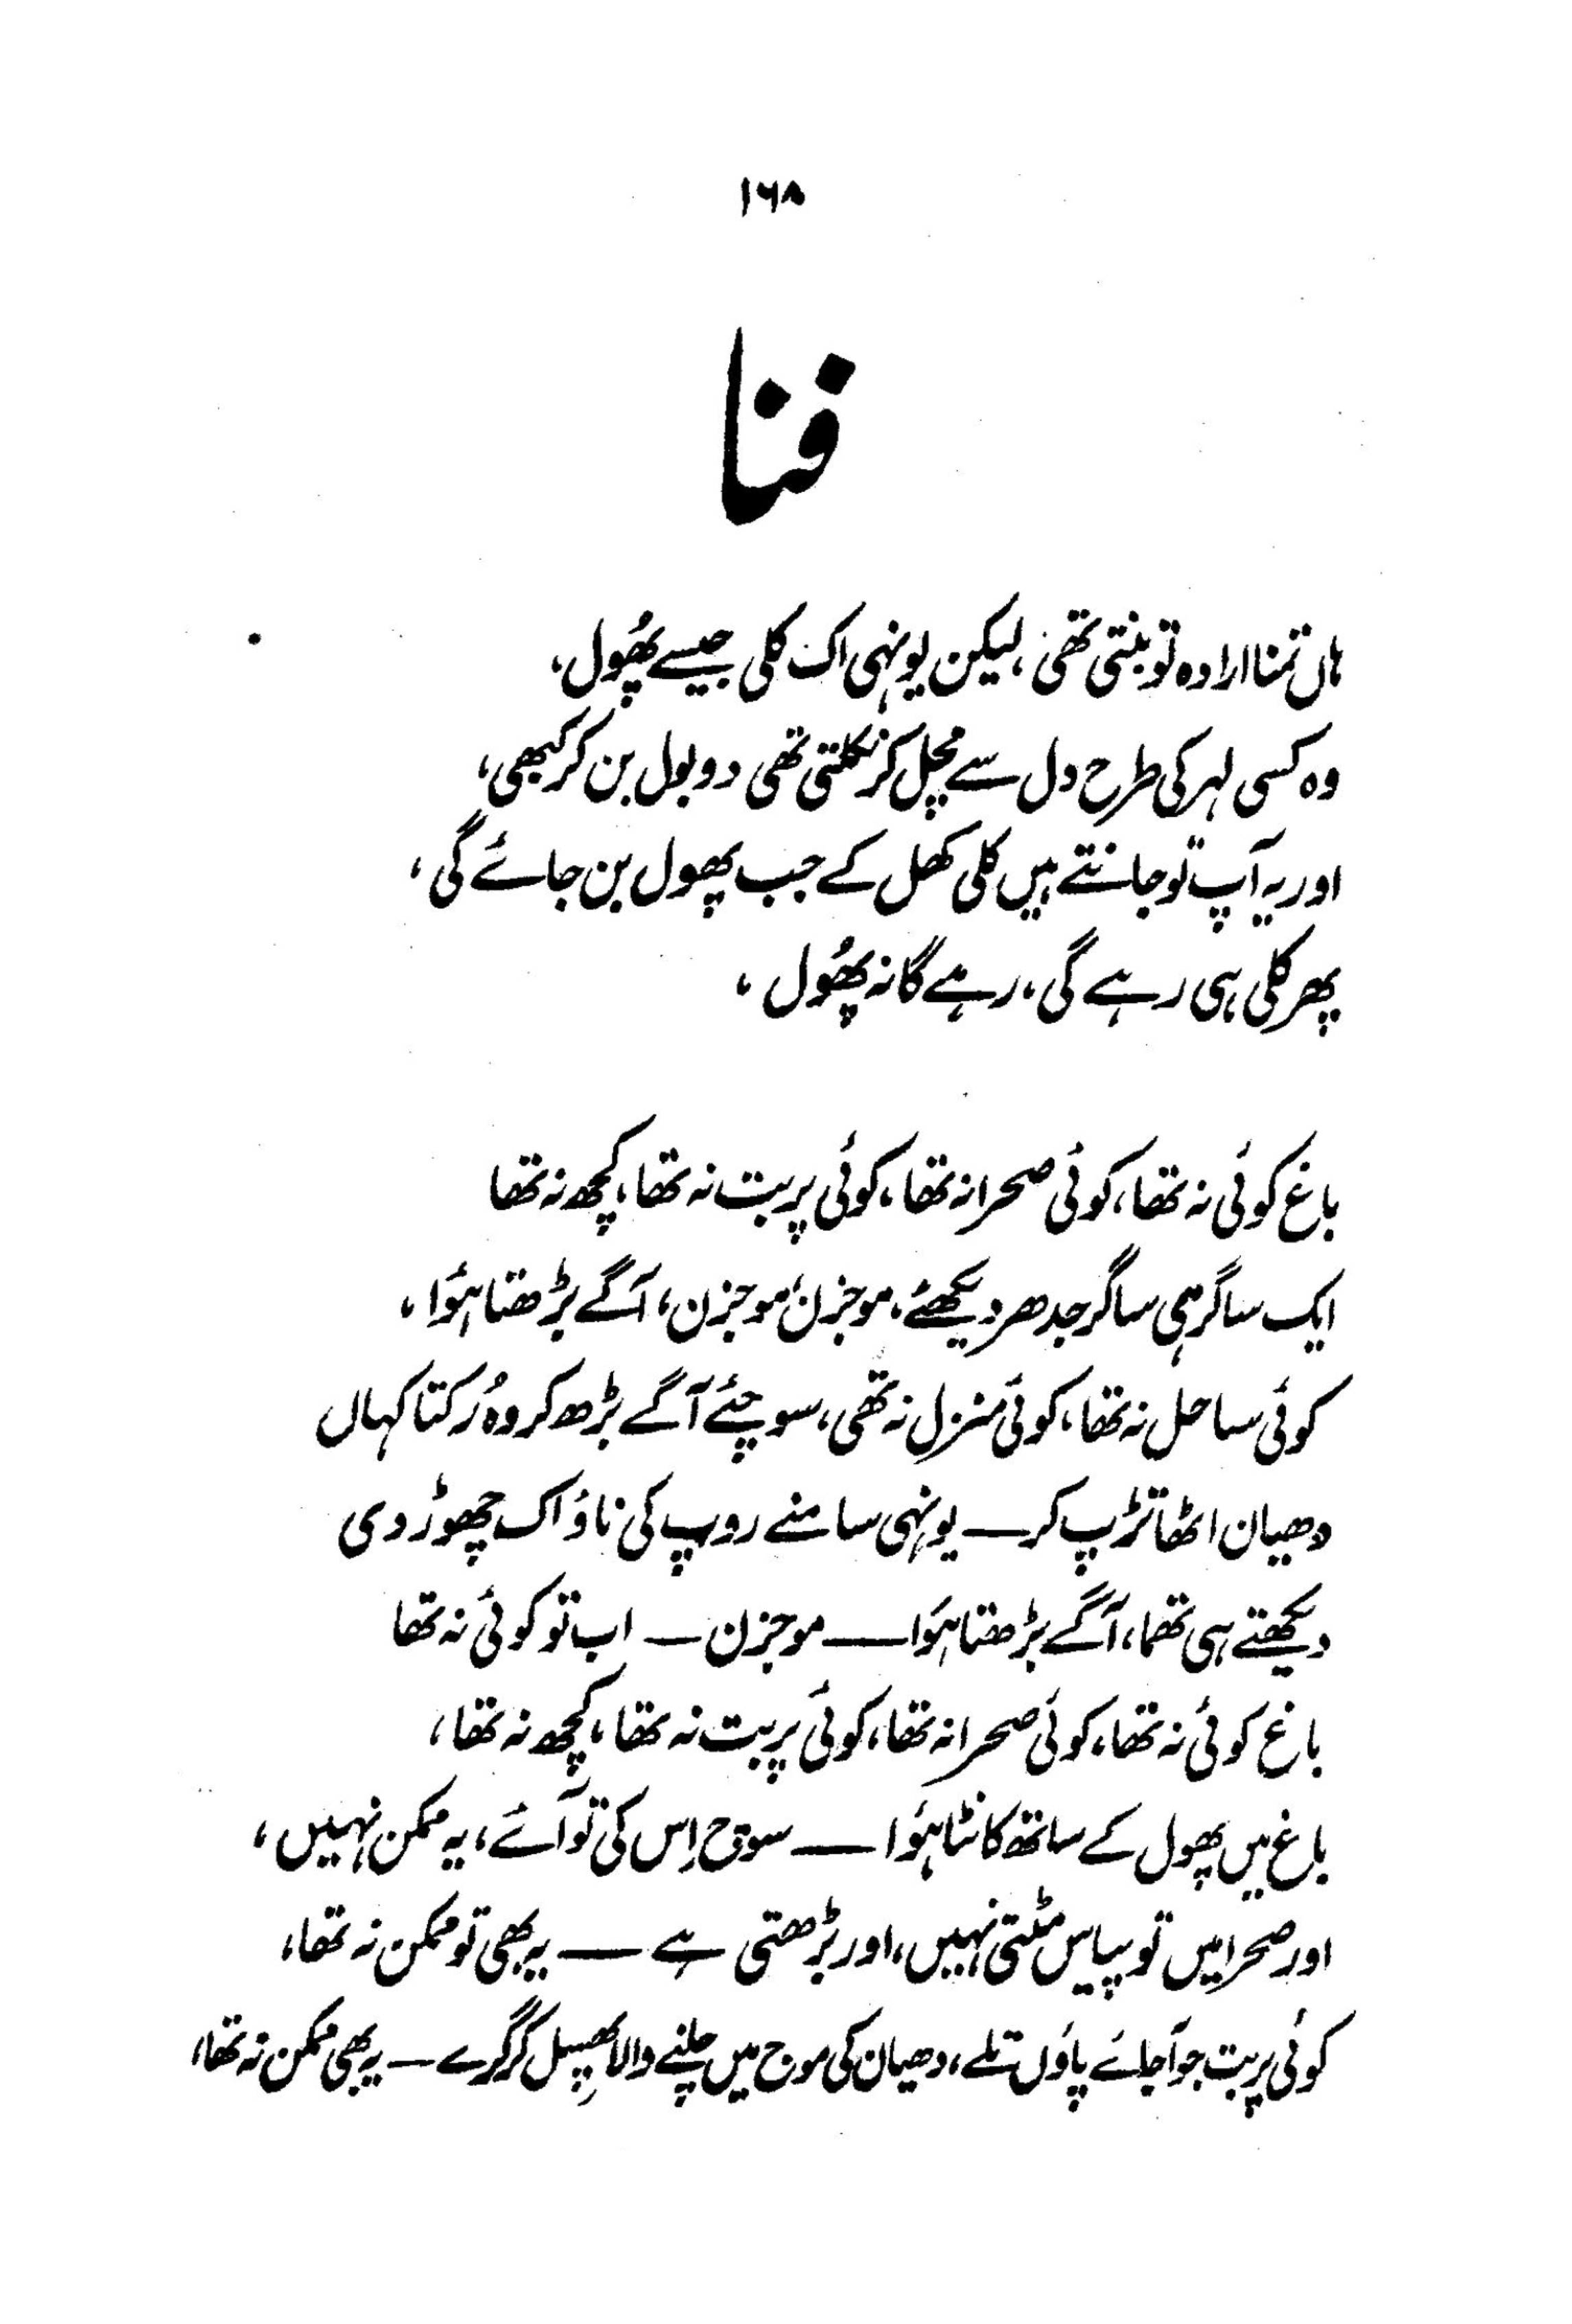 ۱۶۸
فنا
ہاں تمنا ارادہ تو بنتی تھی، لیکن یونہی اک کلی جیسے پھُول،
وہ کسی لہر کی طرح دل سے مچل کر نکلتی تھی دو بول بن کر کبھی،
اور یہ آپ تو جانتے ہیں کلی کھل کے جب پھول بن جائے گی،
پھر کلی ہی رہے گی، رہے گا نہ پھُول،
باغ کوئی نہ تھا، کوئی صحرا نہ تھا، کوئی پربت نہ تھا، کچھ نہ تھا
ایک ساگر ہی ساگر جدھر دیکھئے، موجزن، موجزن، آگے بڑھتا ہؤا،
کوئی ساحل نہ تھا، کوئی منزل نہ تھی، سوچئے آگے بڑھ کر وہ رُکتا کہاں
دھیان اٹھا تڑپ کر — یونہی سامنے روپ کی ناؤ اک چھوڑ دی
دیکھتے ہی تھما، آگے بڑھتا ہؤا — موجزن — اب تو کوئی نہ تھا
باغ کوئی نہ تھا، کوئی صحرا نہ تھا، کوئی پربت نہ تھا، کچھ نہ تھا،
باغ میں پھول کے ساتھ کانٹا ہؤا — سوچ اِس کی تو آئے، یہ ممکن نہیں،
اور صحرا میں تو پیاس مٹتی نہیں، اور بڑھتی ہے — یہ بھی تو ممکن نہ تھا،
کوئی پربت جو آجائے پاؤں تلے، دھیان کی موج میں چلنے والا پھِسل کر گرے — یہ بھی ممکن نہ تھا،